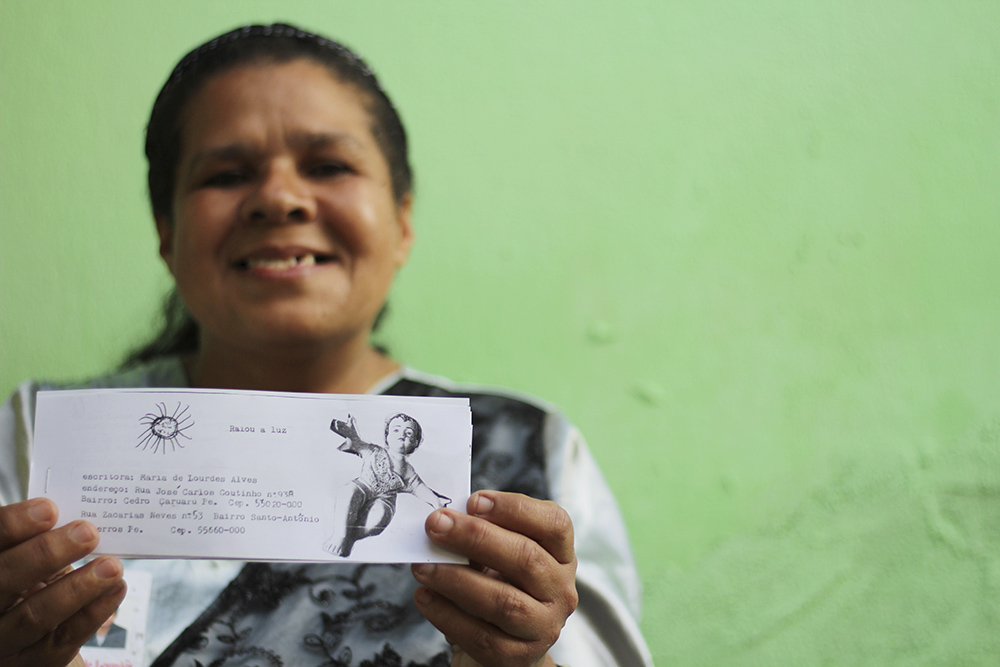 Raiou a luz
escritora: Maria de Lourdes Alves
endereço: Rua José Carlos Coutinho nº93ª
Bairro: Cedro Caruaru Pe. Cep. 55020-000
Rua Zacarias Neves nº53 Bairro Santo-Antônio
Pe. Cep. 55660-000